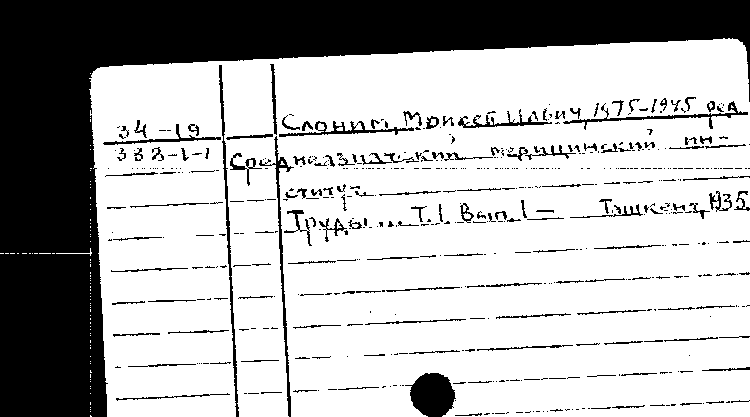 34-19 Слоним, Моисей Ильич, 1875-1945 ред.
338-1-1 Среднеазиатский медицинский ин-
ститут.
Труды... Т.1. Вып. 1 — Ташкент, 1935.